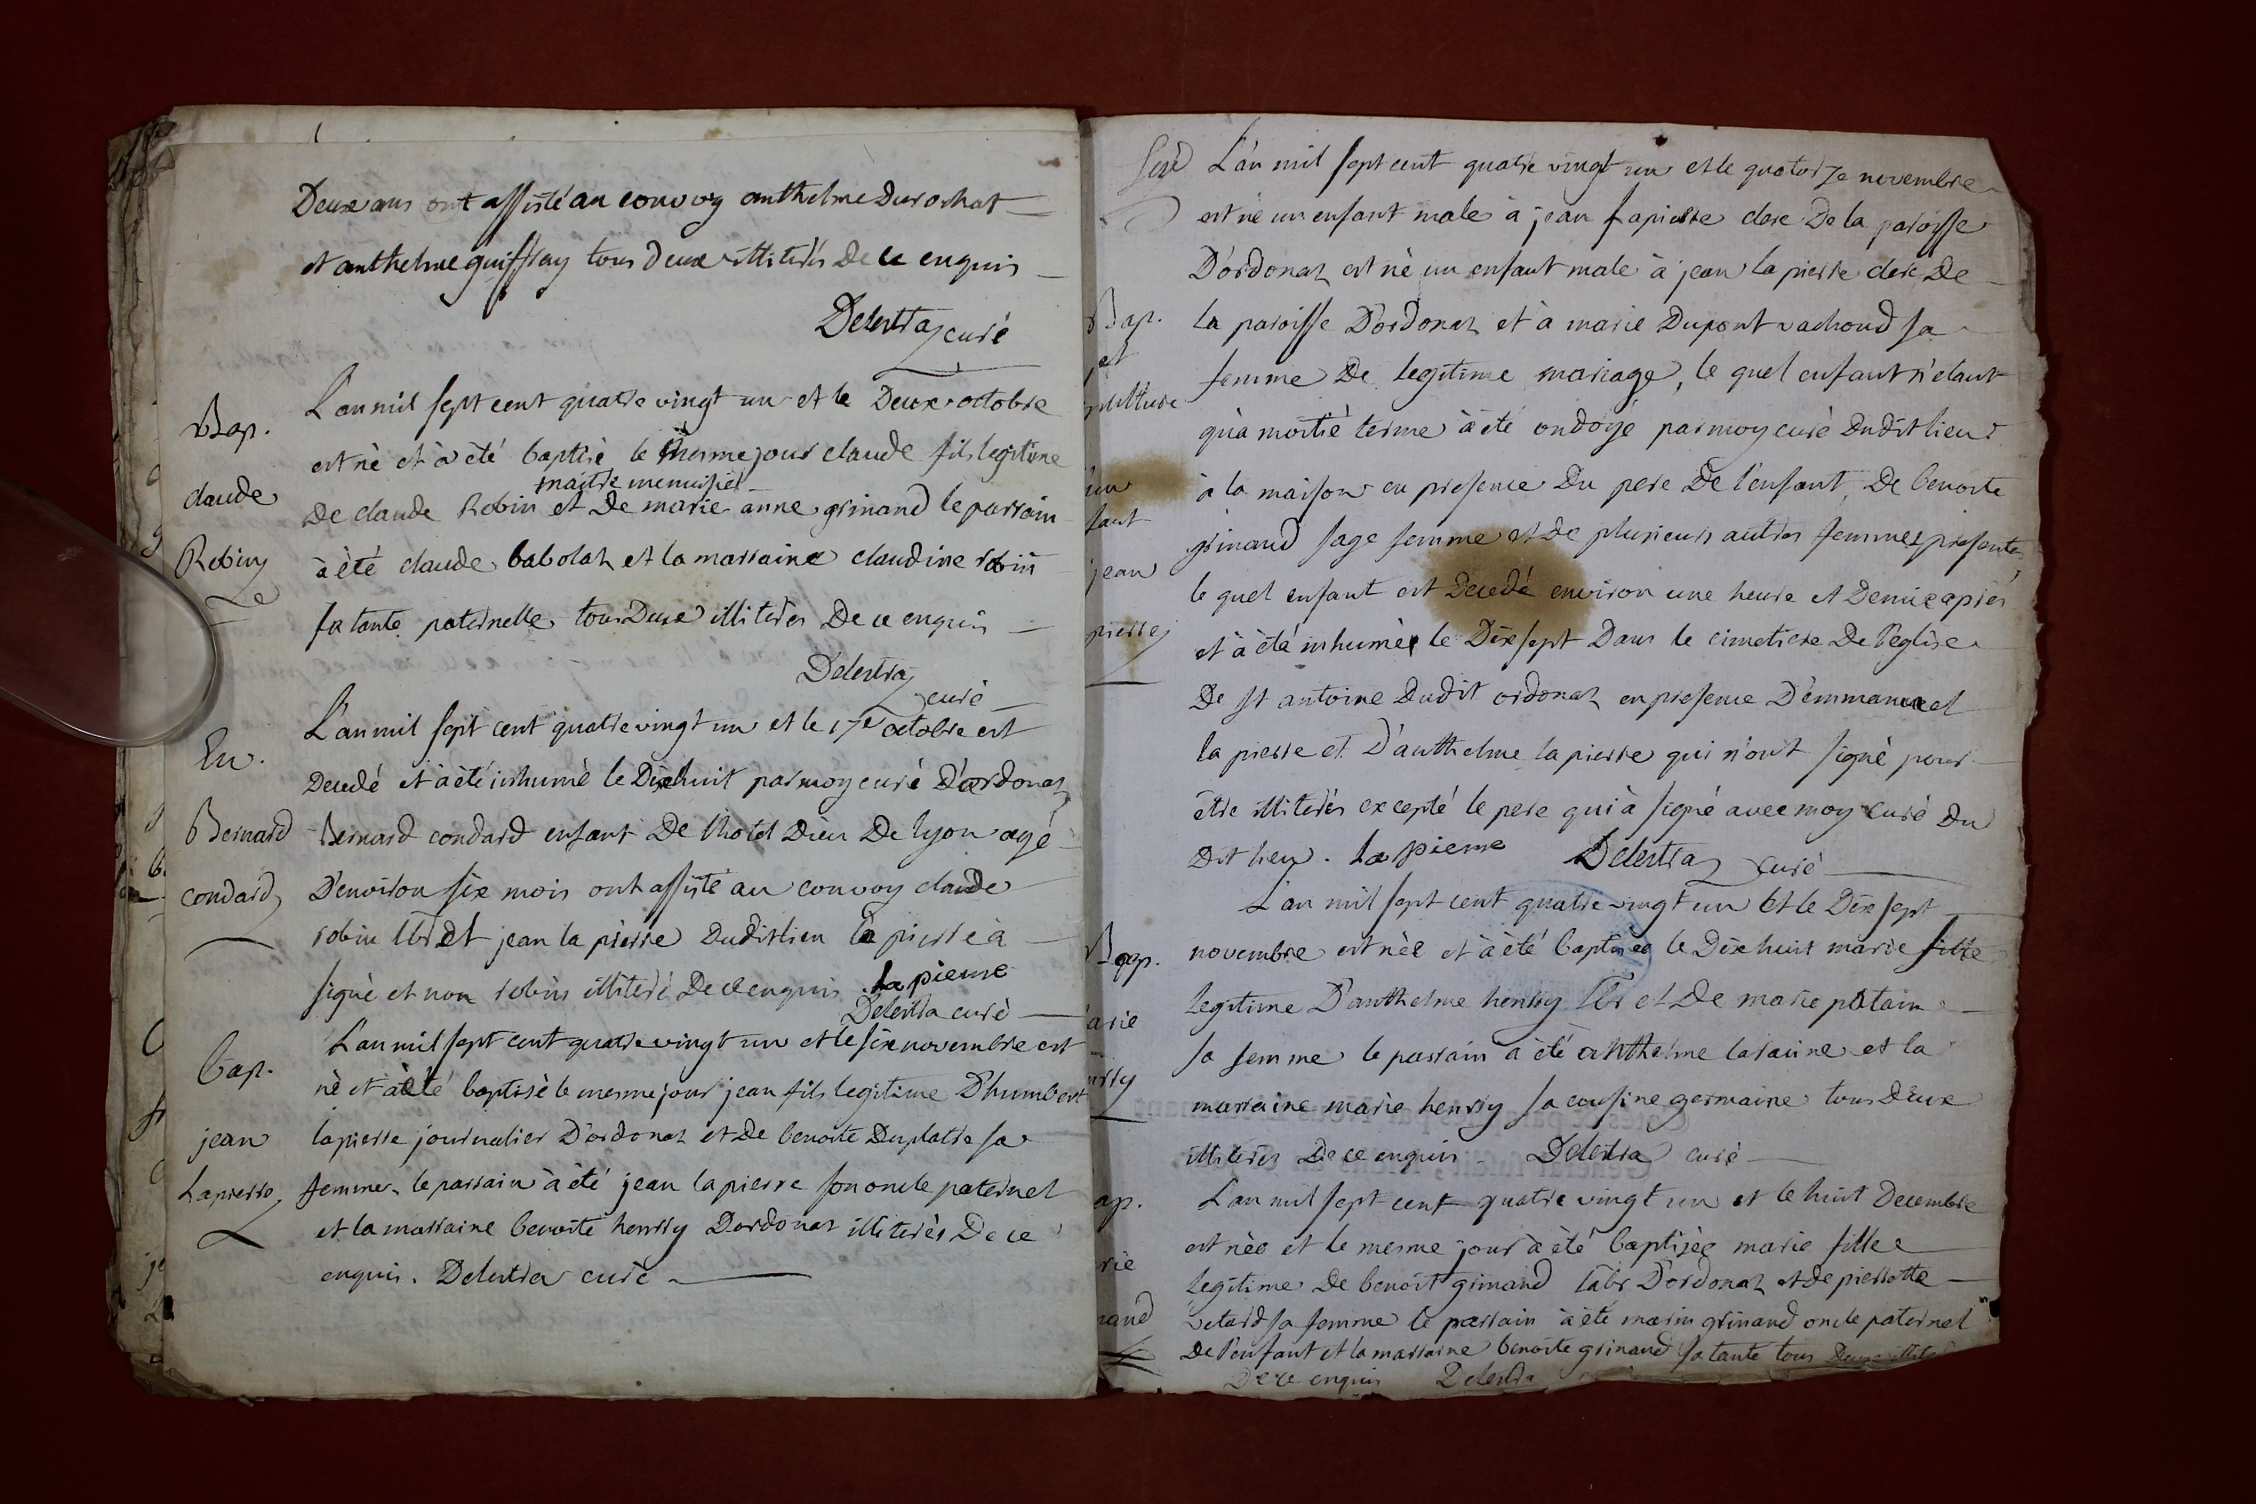 Deux ans ont assisté au convoy anthelme Durochat
et anthelme guiffray tous deux illiterés De ce enquis
Delestra curé
Bap.
claude
Robin
L'an mil sept cent quatre vingt un et le Deux octobre
est né et à été baptisé le mesme jour claude fils legitime
maitre menuisier
De claude Robin et De marie anne grinand le parrain
à été claude babolat et la marraine claudine robin
sa tante paternelle tous Deux illiterés De ce enquis
Delestra
curé
En.
Bernard
condard
L'an mil sept cent quatre vingt un et le 17e octobre est
Decedé et à été inhumé le Dixhuit par moy curé D'ordonat
Bernard condard enfant De l'hotel Dieu De lyon agé
D'environ six mois ont assisté au convoy claude
robin lbr et jean la pierre Dudit lieu la pierre à
signé et non robin illiteré De ce enquis la pierre
Delestra curé
bap.
jean
Lapierre
L'an mil sept cent quatre vingt un et le six novembre est
né et à été baptisé le mesme jour jean fils legitime D'humbert
lapierre journalier D'ordonat et De benoite Duplatre sa
femme, le parrain à été jean lapierre son oncle paternel
et la marraine benoite henrry Dordonat illiterés De ce
enquis. Delestra curé
L'an mil sept cent quatre vingt un et le quatorze novembre
est né un enfant male à jean lapierre clerc De la paroisse
D'ordonat est né un enfant male à jean la pierre clerc De
Bap.
et
la paroisse D'ordonat et à marie Dupont vachoud sa
femme De legitime mariage, le quel enfant n'etant
qu'à moitié terme à été ondoyé par moy curé Dudit lieu
à la maison en presence Du pere De l'enfant, De benoite
grinand sage femme et De plusieurs autres femmes presente,
jean
pierre
le quel enfant est Decedé environ une heure et Demie aprés
et à été inhumé le Dix sept Dans le cimetiere De l'eglise
De st antoine Dudit ordonat en presence D'emmanuel
la pierre et D'anthelme la pierre qui n'ont signé pour
étre illiterés excepté le pere qui à signé avec moy curé Du
Dit lieu. la pierre Delestra curé
Bap.
arie
L'an mil sept cent quatre vingt un et le Dix sept
novembre est née et à été baptisée le Dix huit marie fille
legitime D'anthelme henrry lbr et De marie putain
sa femme le parrain à été anthelme larauine et la
marraine marie henrry sa cousine germaine tous Deux
illiterés De ce enquis - Delestra curé
ap.
rie
nand
L'an mil sept cent quatre vingt un et le huit Decembre
est née et le mesme jour à été baptisée marie fille
legitime De benoit grinand labr D'ordonat et de pierrotte
betard sa femme le parrain à été marin grinand oncle paternel
De l'enfant et la marraine benoite grinand sa tante tous Deux
De ce enquis Delestra